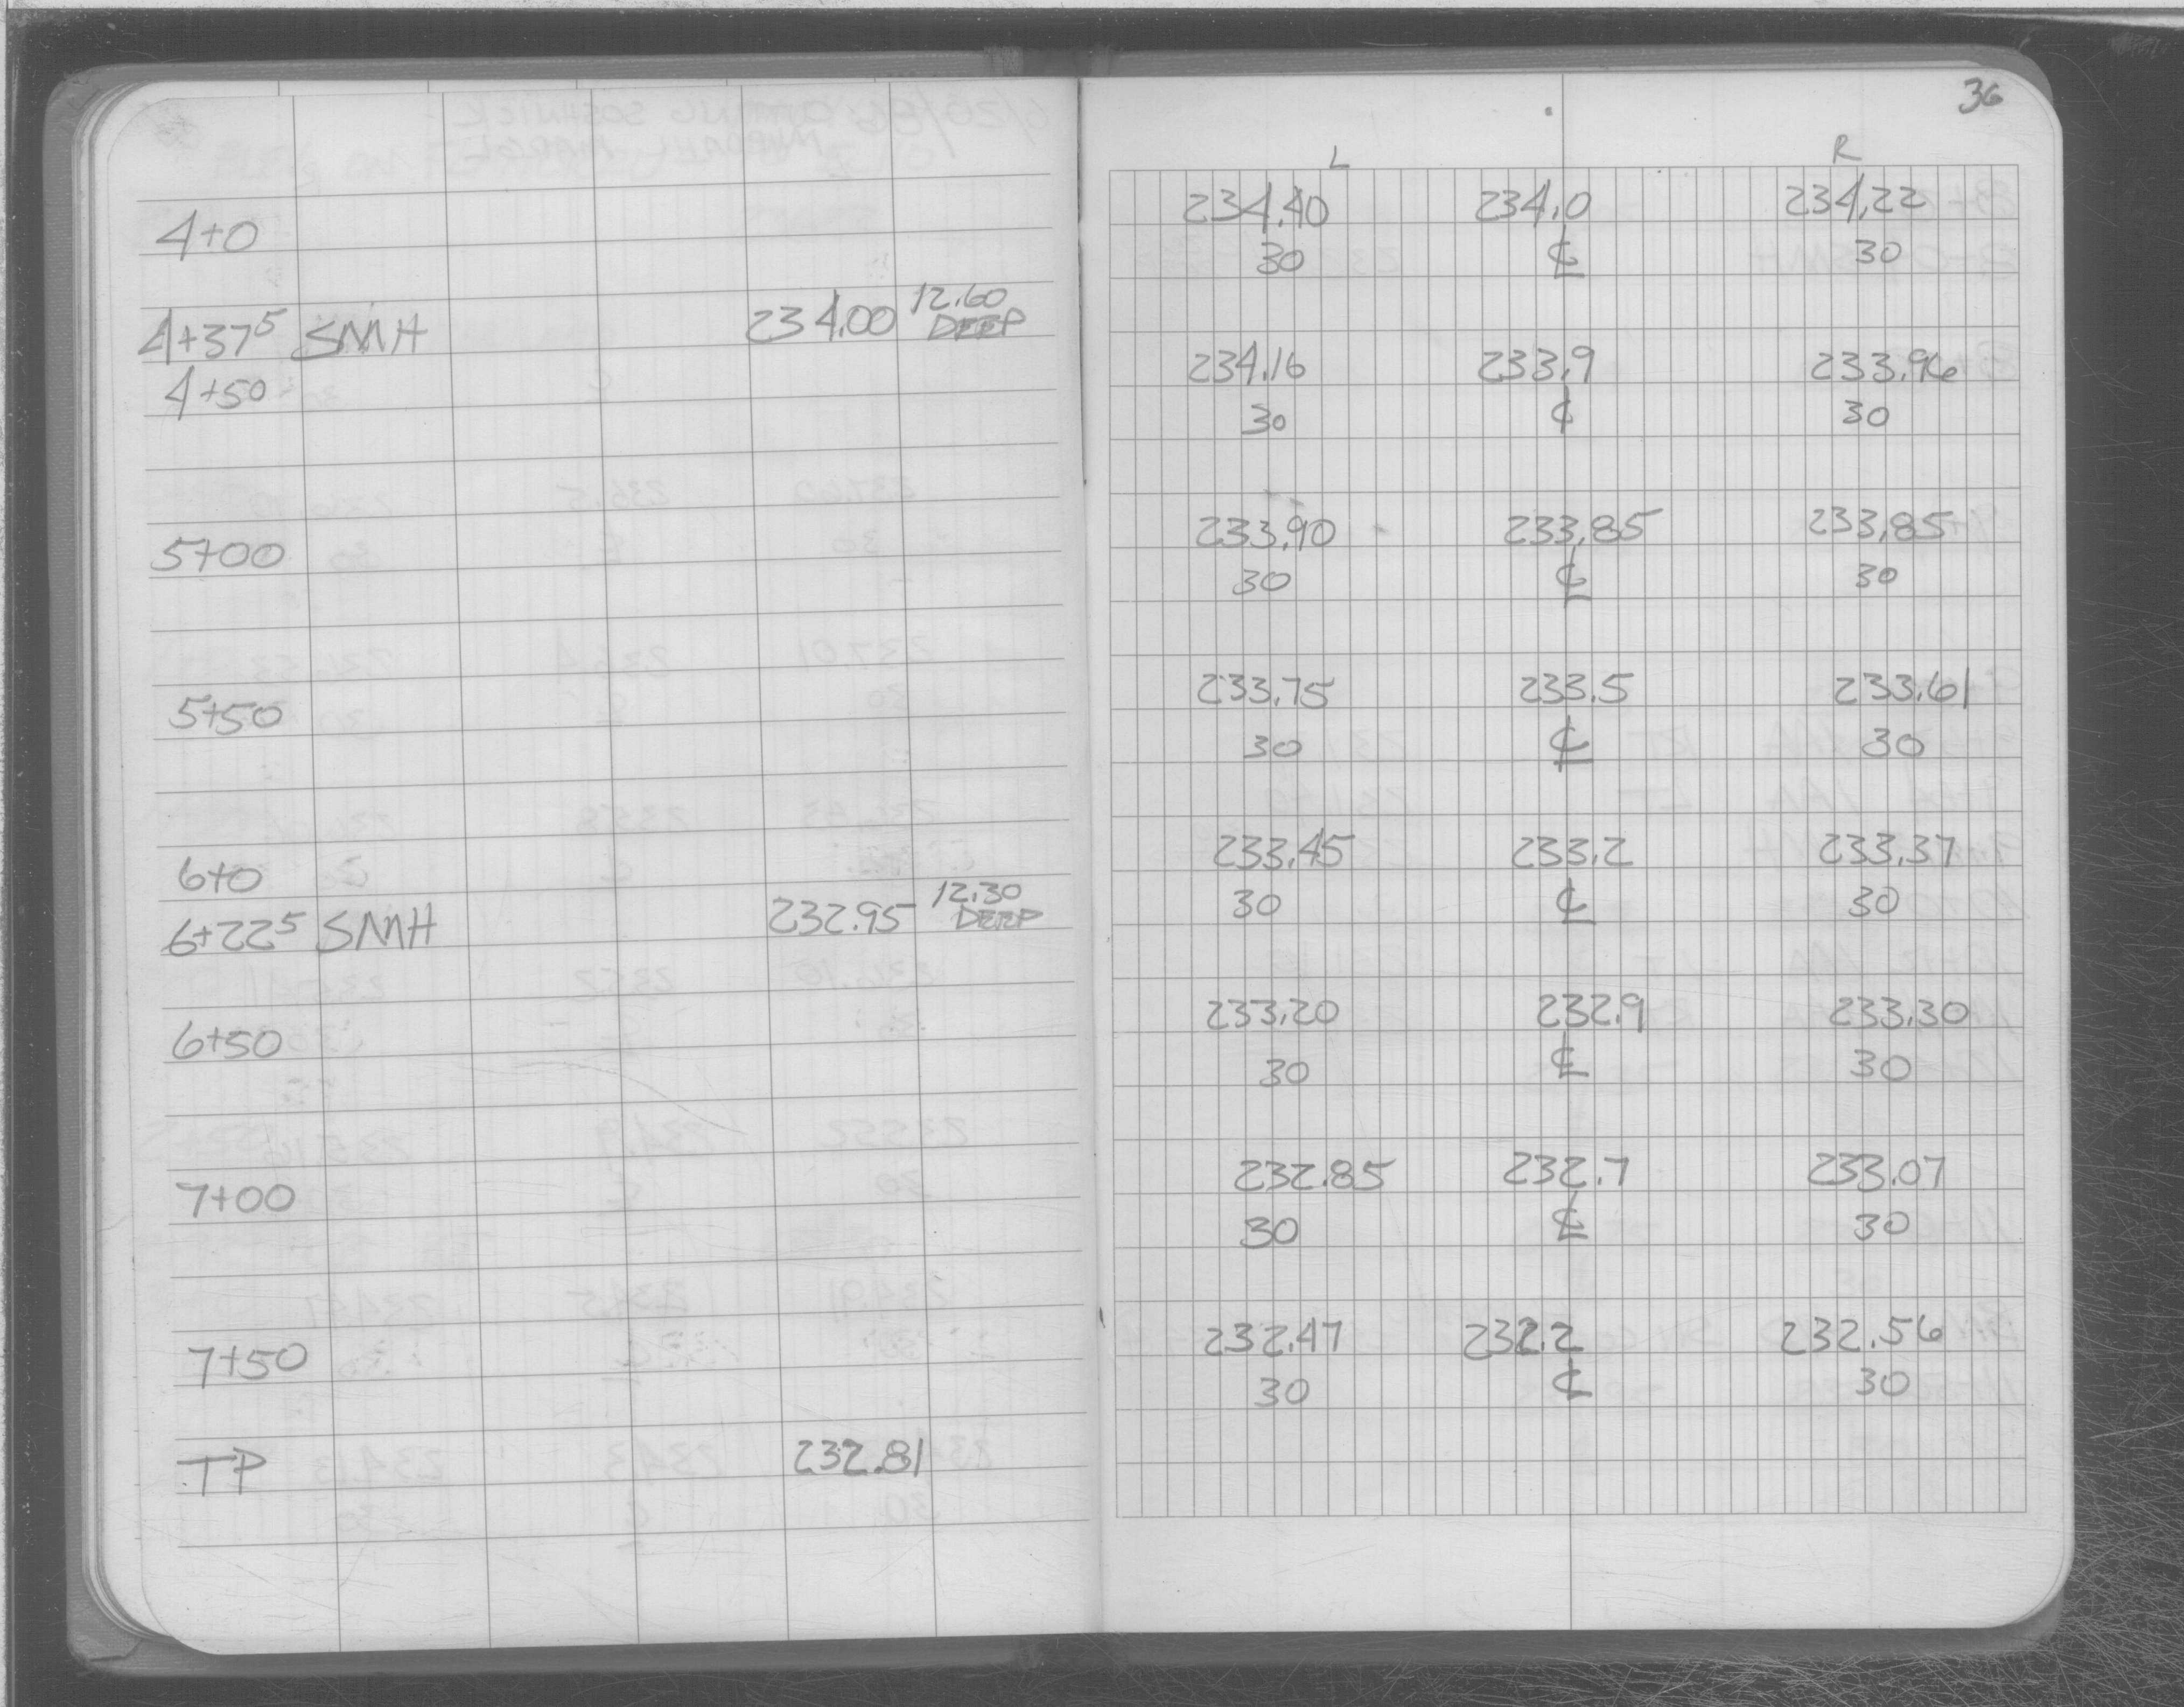 36
L R
4+0 234.40 234.0 234.22
30 ℄ 30
4+37⁵ SMH 234.00 12.60 DEEP
4+50 234.16 233.9 233.96
30 ℄ 30
5+00 233.90 233.85 233.85
30 ℄ 30
5+50 233.75 233.5 233.61
30 ℄ 30
6+0 233.45 233.2 233.37
30 ℄ 30
6+22⁵ SMH 232.95 12.30 DEEP
6+50 233.20 232.9 233.30
30 ℄ 30
7+00 232.85 232.7 233.07
30 ℄ 30
7+50 232.47 232.2 232.56
30 ℄ 30
TP 232.81